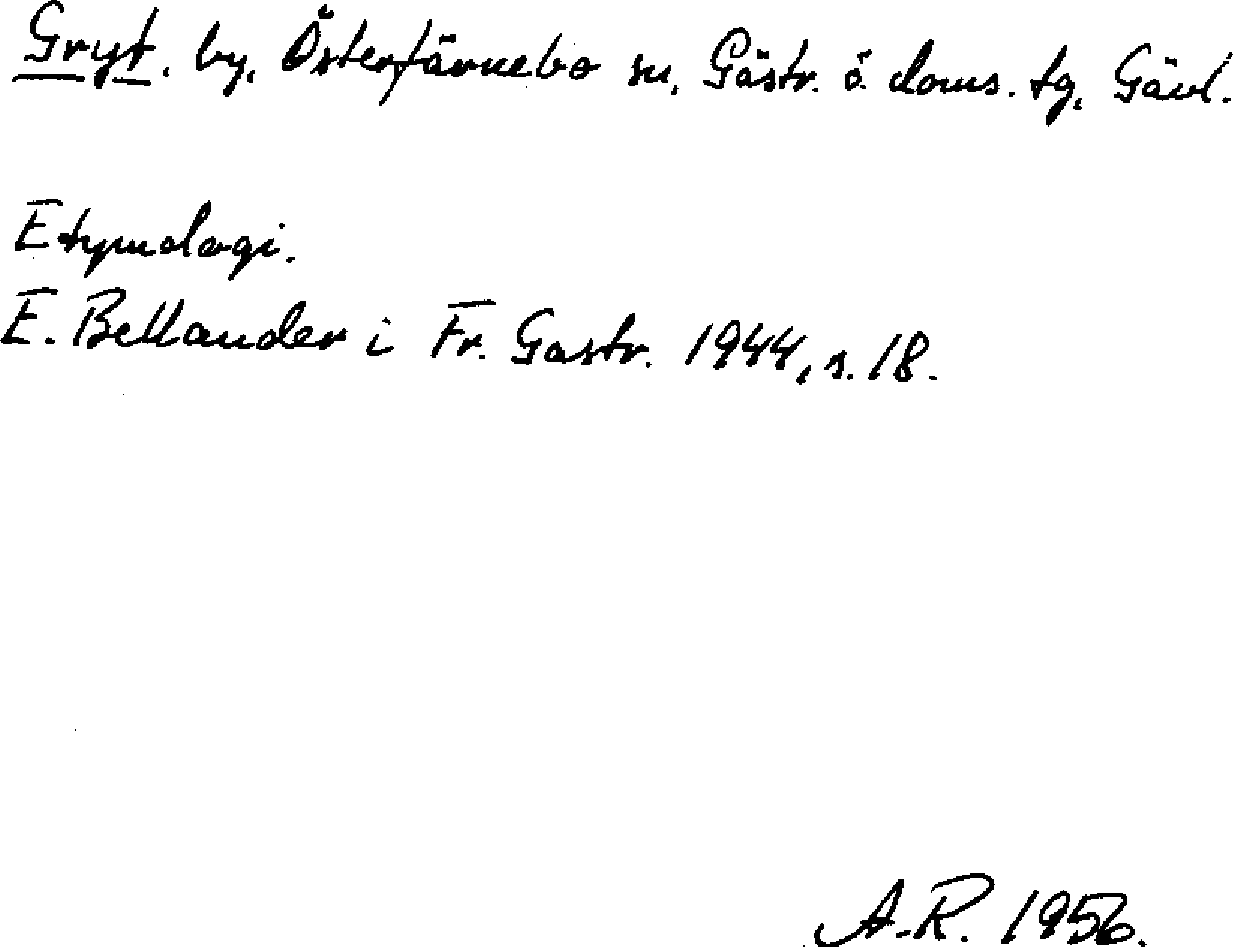 Gryt, by, Österfärnebo sn, Gästr. ö. doms. tg, Gävl.
Etymologi.
E. Bellander i Fr. Gästr. 1944, s. 18.
A.R. 1956.